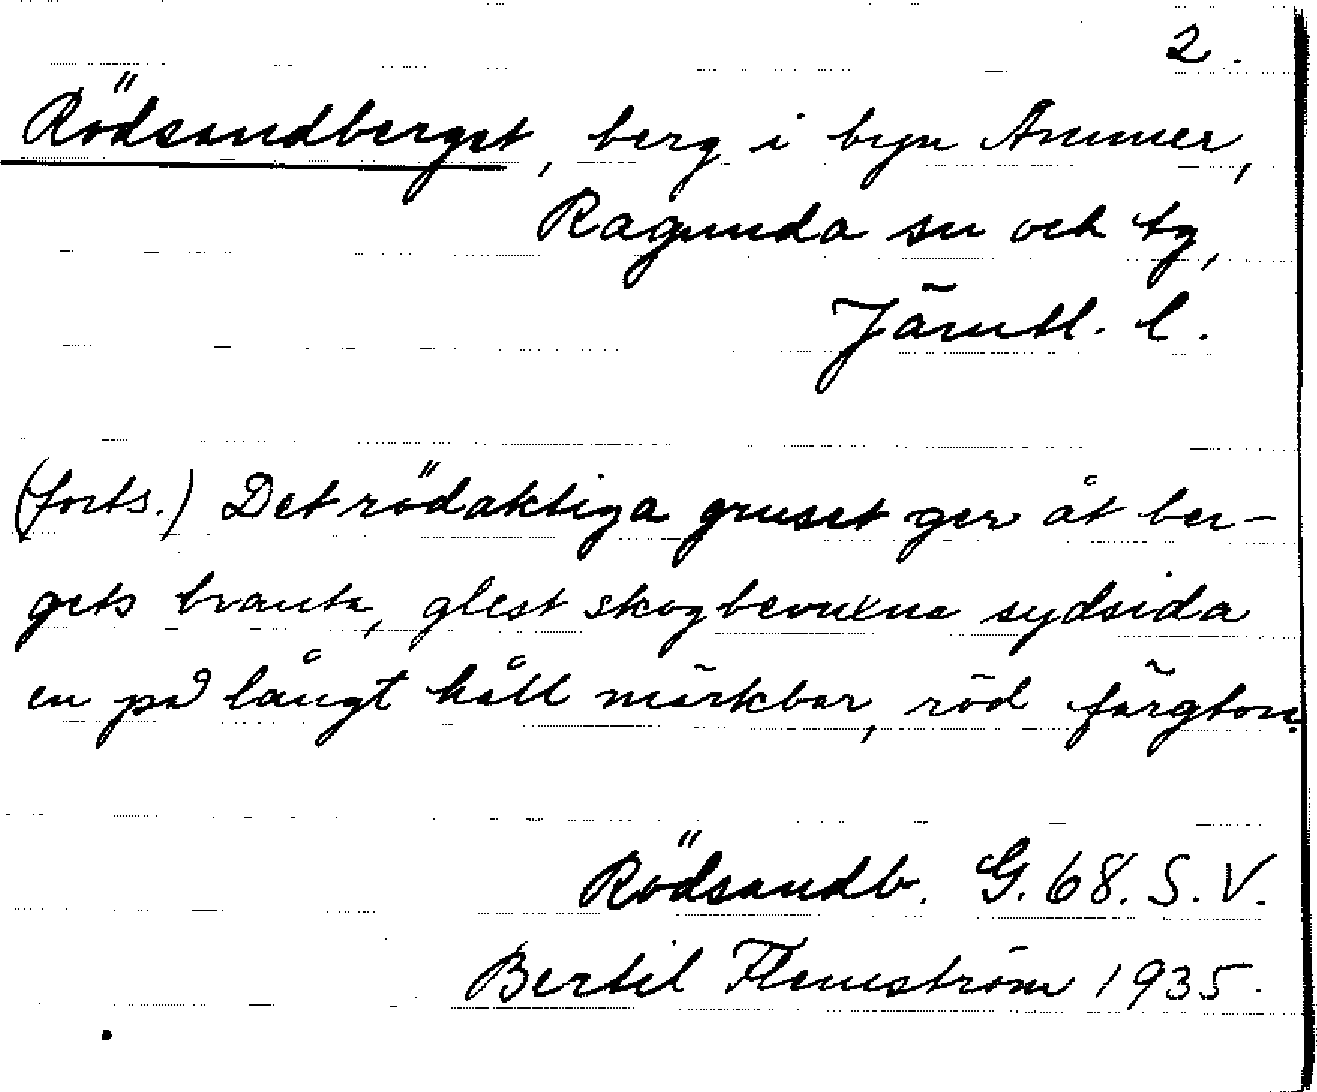 2.
Rödsandberget, berg i byn Ammer,
Ragunda sn och tg,
Jämtl. l.
(forts.) Det rödaktiga gruset ger åt ber-
gets branta, glest skogbevuxna sydsida
en på långt håll märkbar, röd färgton.
Rödsandb. G. 68. S. V.
Bertil Flemström 1935.